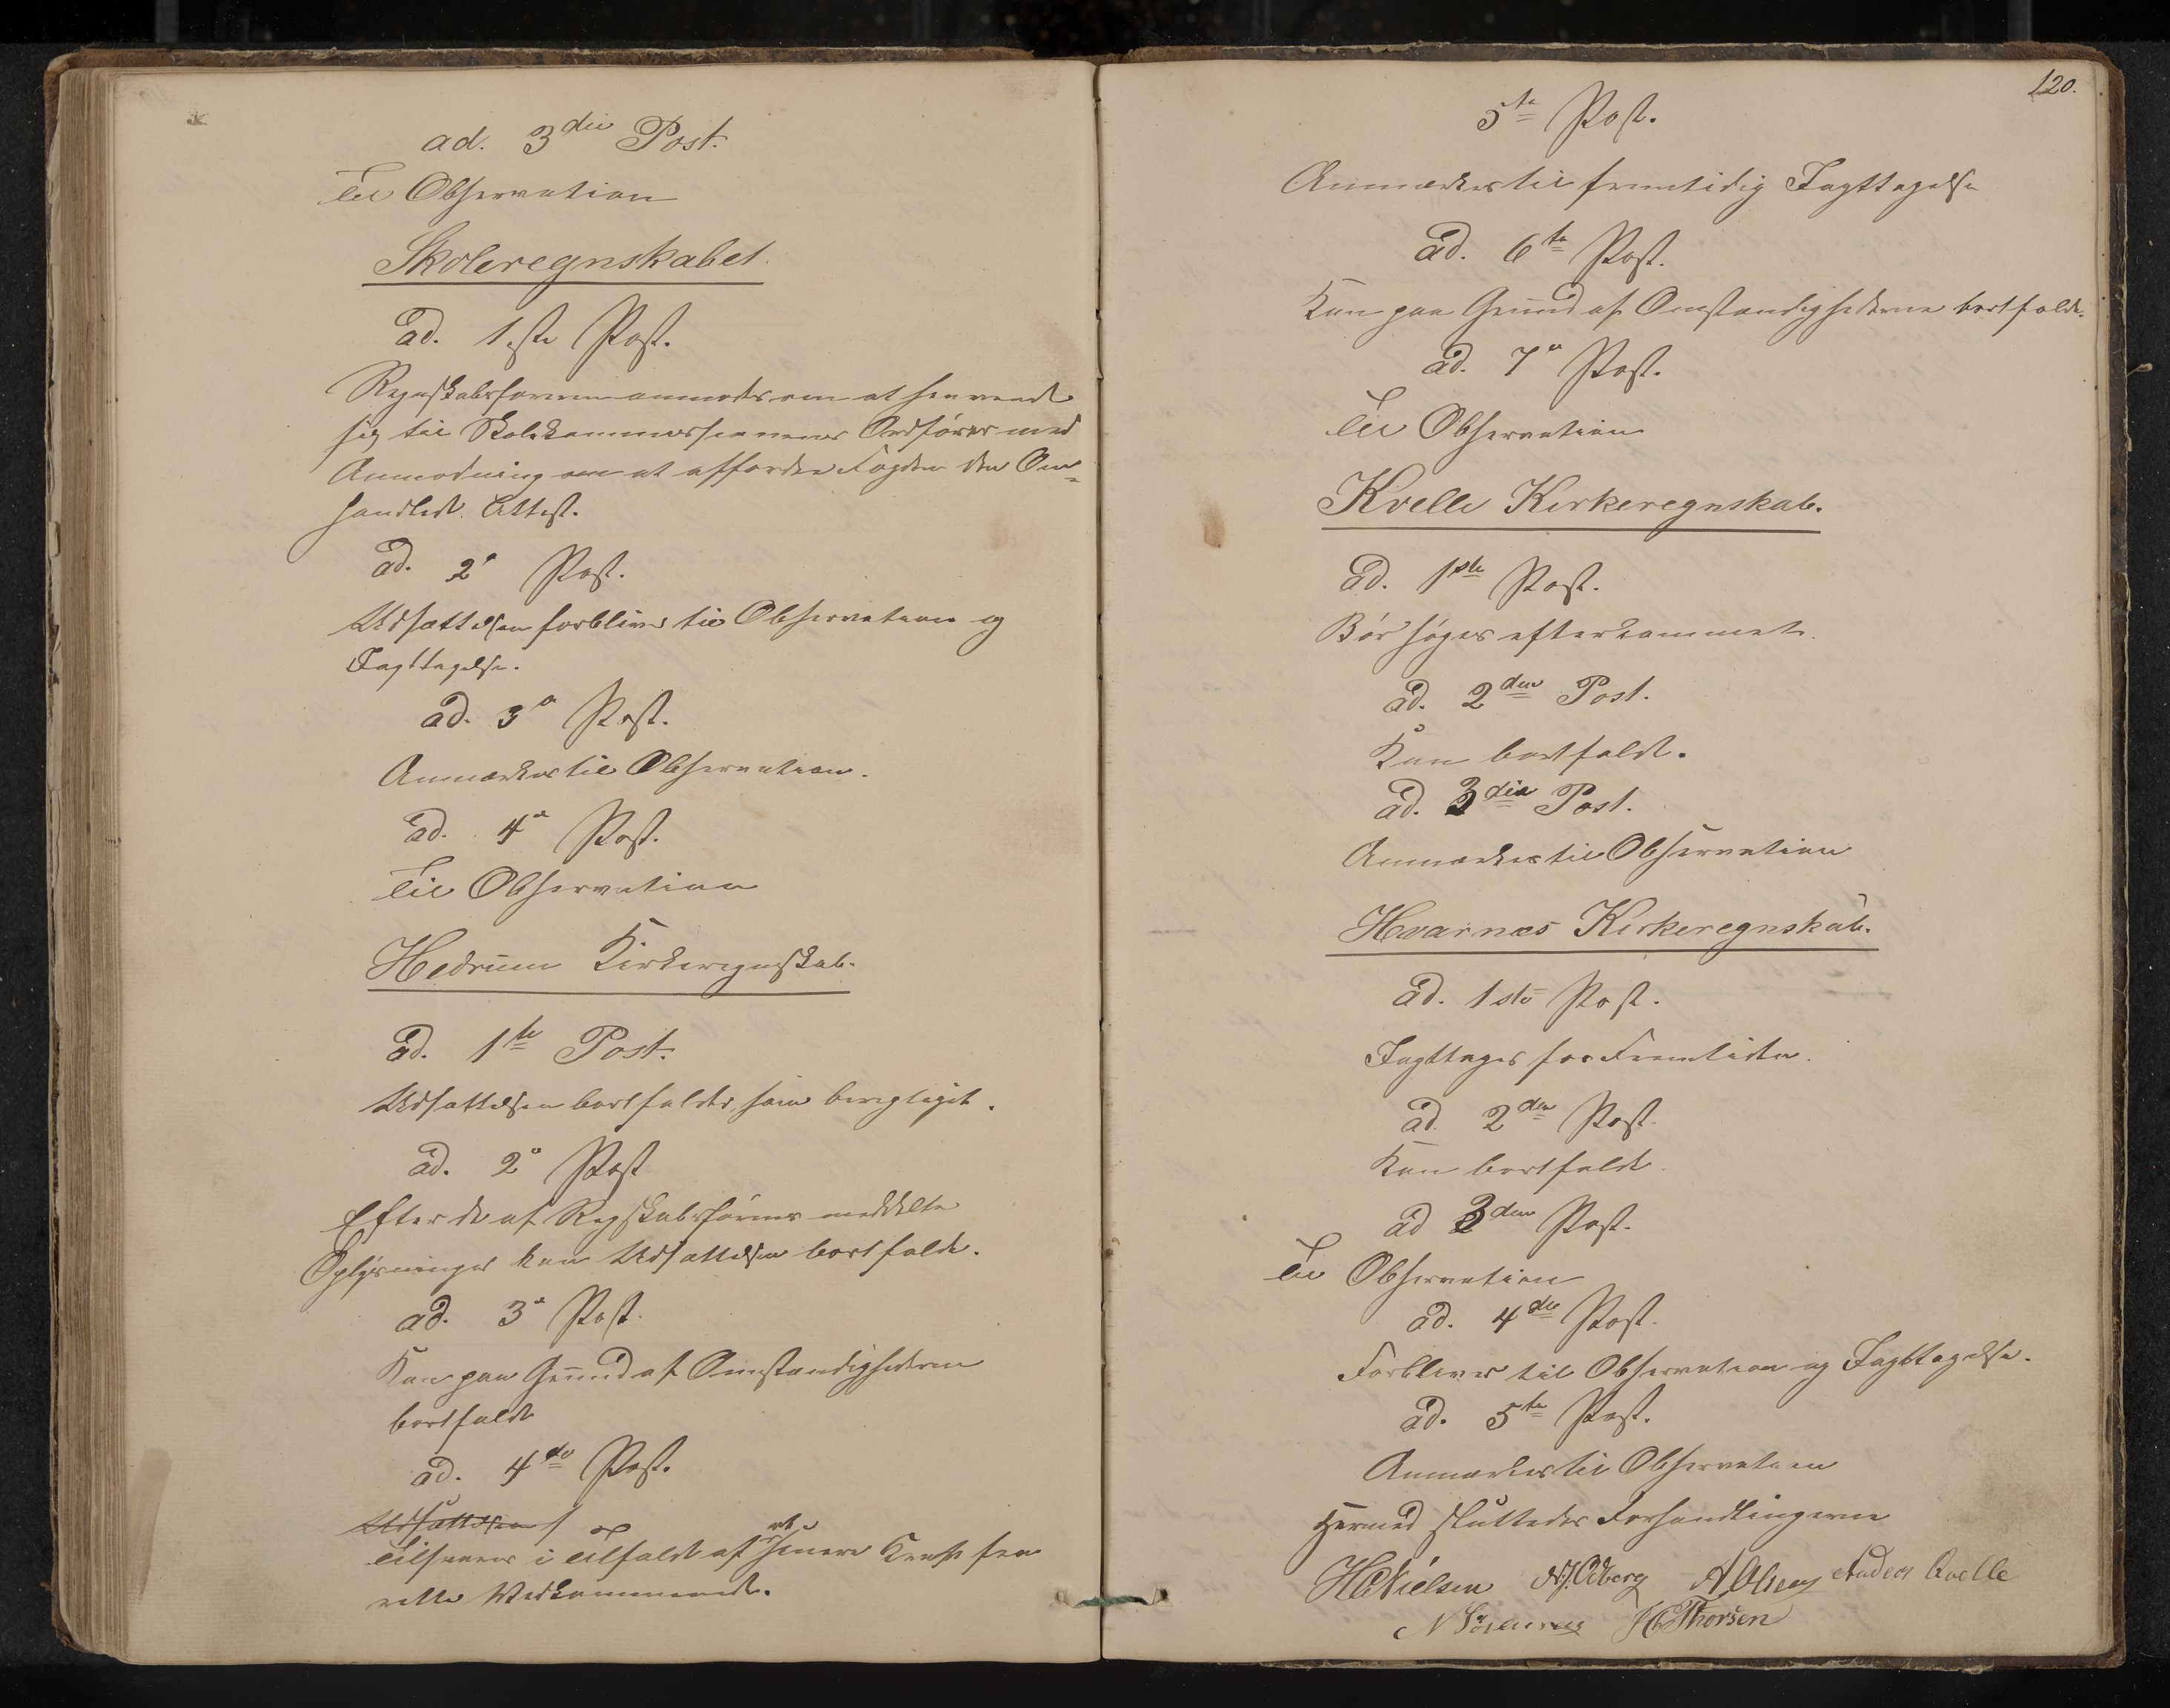 ad. 3die Post.
Til Observation
Skoleregnskabet.
ad. 1ste Post.
Regnskabsføreren anmodes om at henvende
sig til Skolekommissionens Ordfører med
Anmodning om at affordre Fogden den Om-
handlede Attest.
ad. 2n Post.
Udsættelsen forbliver til Observation og
Iagttagelse.
ad. 3n Post.
Anmærkes til Observation.
ad. 4n Post.
Til Observation
Hedrum Kirkeregnskab.
ad. 1te Post.
Udsættelsen bortfalder som berigtiget.
ad. 2n Post
Efter de af Regskabsføreren meddelte
Oplysninger kan Udsættelsen bortfalde.
ad. 3n Post.
Kan paa Grund af Omstændighederne
bortfalde
ad. 4de Post.
Udsættelsen
Tilsvares i Tilfælde af senere Krav fra
rette Vedkommende.
120.
5te Post.
Anmærkes til fremtidig Iagttagelse
ad. 6te Post.
Kan paa Grund af Omstændighederne bortfalde.
ad. 7n Post.
Til Observation
Kvelle Kirkeregnskab.
ad. 1ste Post.
Bør søges efterkommet.
ad. 2den Post.
Kan bortfalde.
ad. 3die Post.
Anmærkes til Observation
Hvarnæs Kirkeregnskab.
ad. 1ste Post.
Iagttages for Fremtiden.
ad. 2den Post.
Kan bortfalde.
ad 3den Post.
Til Observation
ad. 4de Post.
Forbliver til Observation og Iagttagelse.
ad. 5te Post.
Anmærkes til Observation
Hermed sluttedes Forhandlingerne
HCNielsen Odberg Anders Qvelle
Thorsen